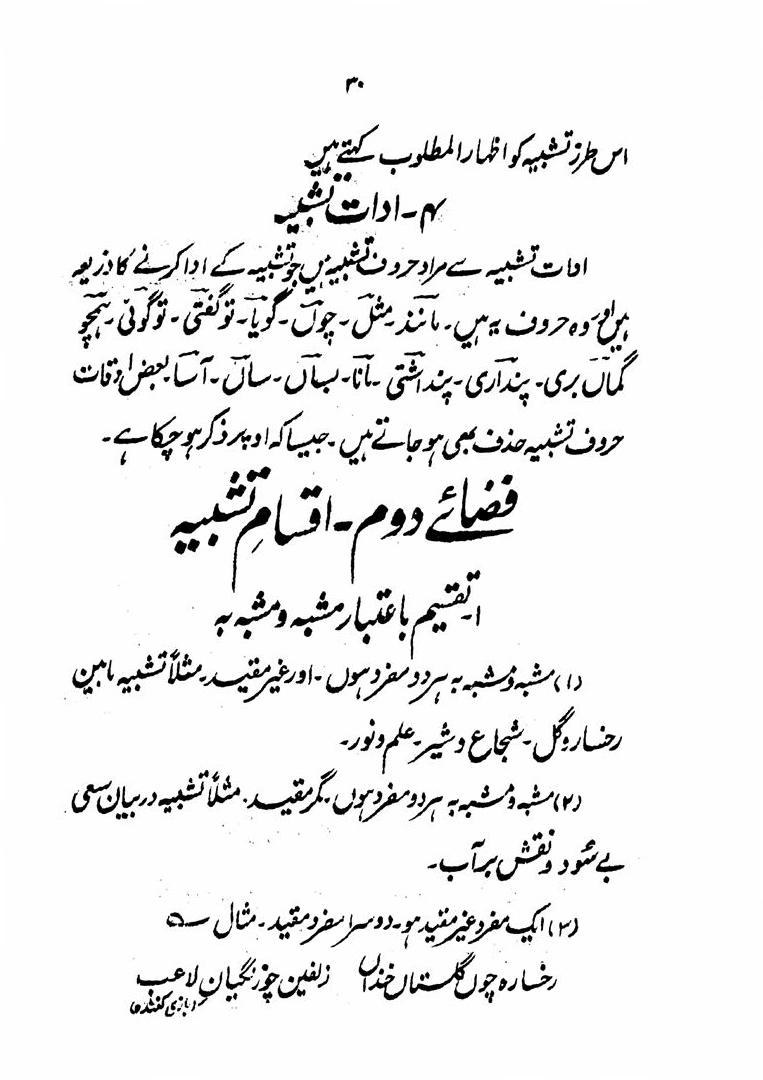 ۳۰
اس طرز تشبیہ کو اظہار المطلوب کہتے ہیں
۴۔ ادات تشبیہ
ادات تشبیہ سے مراد حروف تشبیہ ہیں جو تشبیہ کے ادا کرنے کا ذریعہ
ہیں اور وہ حروف یہ ہیں۔ مانند۔ مثل۔ چوں۔ گویا۔ تو گفتی۔ تو گوئی۔ ہمچو
گماں بری۔ پنداری۔ پنداشتی۔ مانا۔ بساں۔ ساں۔ آسا۔ بعض اوقات
حروف تشبیہ حذف بھی ہو جاتے ہیں۔ جیسا کہ اوپر ذکر ہو چکا ہے۔
فضائے دوم۔ اقسامِ تشبیہ
۱۔ تقسیم باعتبار مشبہ و مشبہ بہ
(۱) مشبہ و مشبہ بہ ہر دو مفرد ہوں۔ اور غیر مقید۔ مثلاً تشبیہ مابین
رخسار و گل۔ شجاع و شیر۔ علم و نور۔
(۲) مشبہ و مشبہ بہ ہر دو مفرد ہوں۔ مگر مقید۔ مثلاً تشبیہ دربیان سعی
بے سُود و نقش بر آب۔
(۳) ایک مفرد غیر مقید ہو۔ دوسرا مفرد مقید۔ مثال ؎
رخسارہ چوں گلستاں خنداں زلفین چو زنگیان لاعب
(بازی کنندہ)